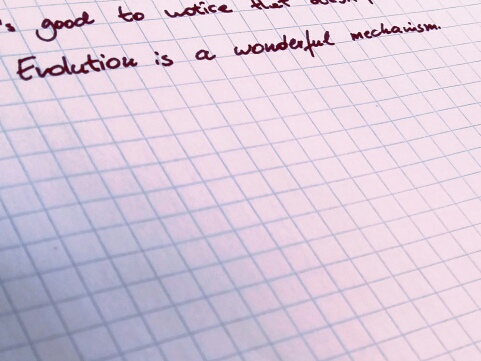 's good to notice that
Evolution is a wonderful mechanism.